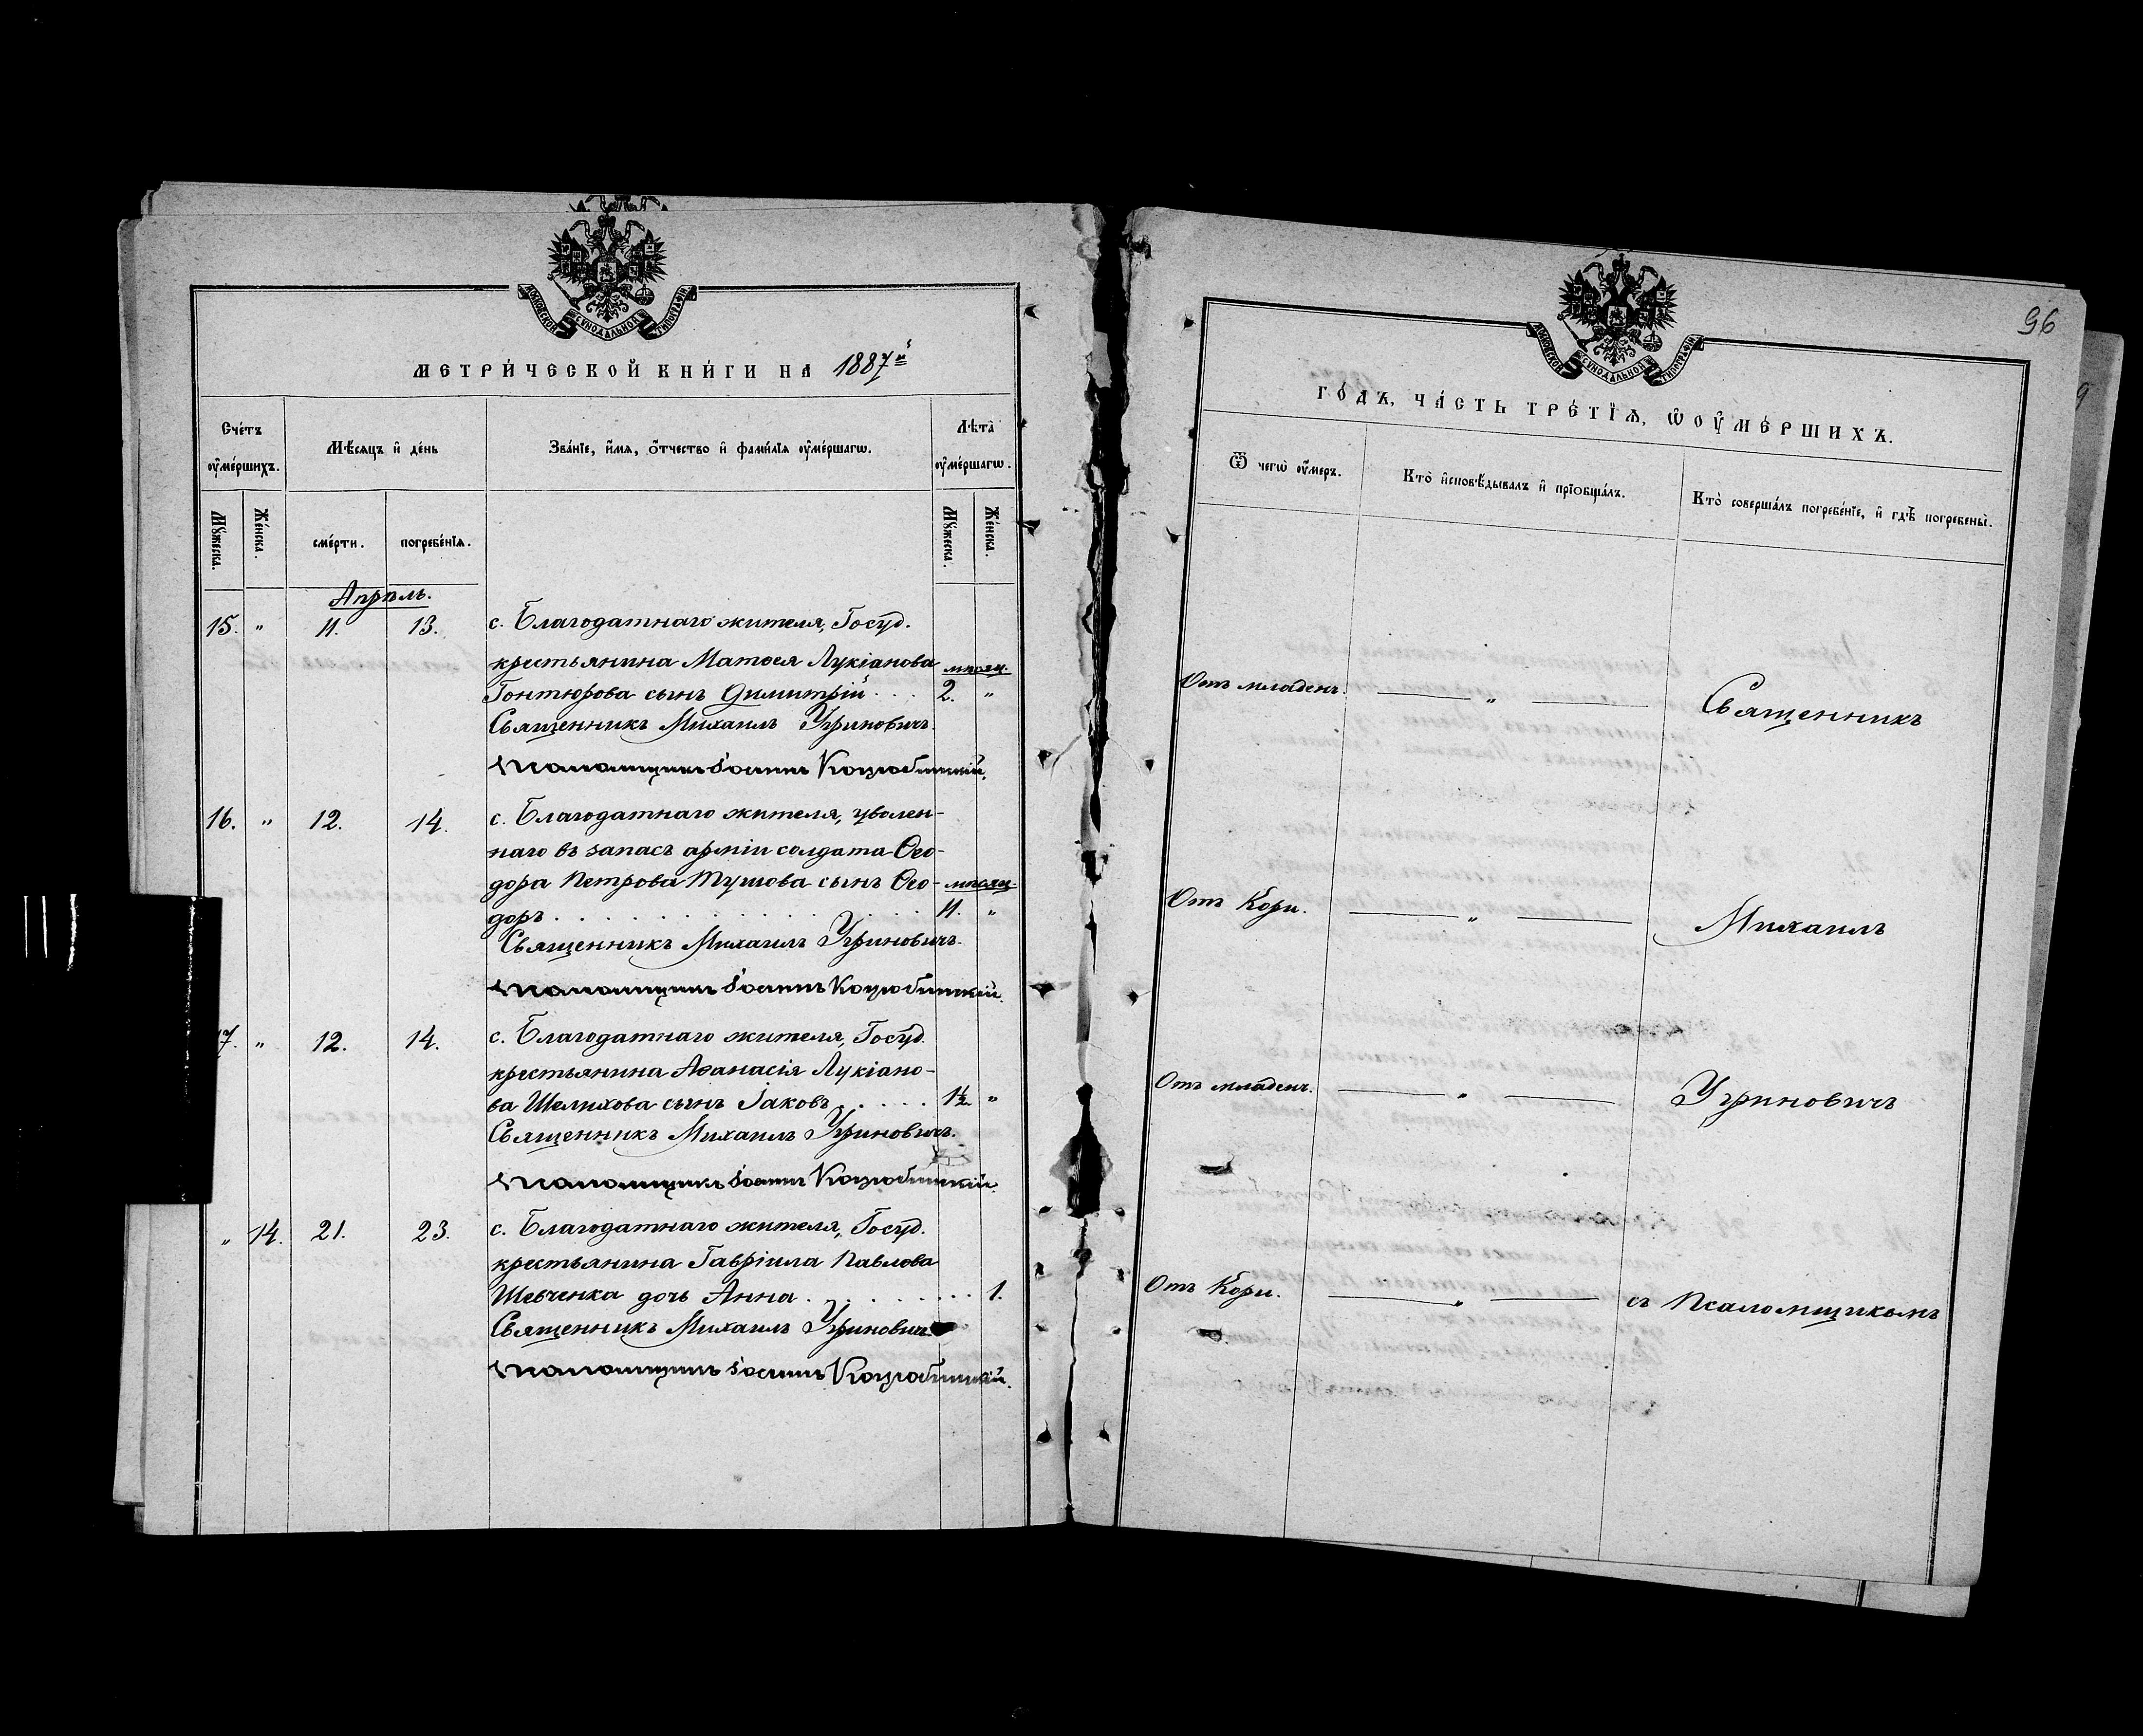 МОСКОВСКОЙ СУНОДАЛЬНОЙ ТИПОГРАФІИ
МЕТРИ́ЧЕСКОЙ КНИ́ГИ НА 1887й
Сче́тъ оу҆ме́ршихъ.
Мѣ́сяцъ и҆ де́нь
Зва́нїе, и҆́мѧ, ѻ҆́тчество и҆ фами́лїѧ оу҆ме́ршагѡ.
Лѣ̀та оу҆ме́ршагѡ.
Мꙋ́жеска.
Же́нска.
сме́рти.
погребе́нїѧ.
Мꙋ́жеска.
Же́нска.
Апрѣль.
15. " 11. 13. с. Благодатнаго жителя, Госуд.
крестьянина Матѳея Лукіанова мѣсяц.
Гонтюрова сынъ Димитрій . . . 2. "
Священникъ Михаилъ Угриновичъ.
Псаломщикъ Іоаннъ Коцюбинскій.
16. " 12. 14. с. Благодатнаго жителя, уволен-
наго въ запасъ арміи солдата Ѳео-
дора Петрова сынъ Ѳео- мѣсяц.
доръ . . . . . . . . . . 11. "
Священникъ Михаилъ Угриновичъ.
Псаломщикъ Іоаннъ Коцюбинскій.
17. " 12. 14. с. Благодатнаго жителя, Госуд.
крестьянина Аѳанасія Лукіано-
ва Шелихова сынъ Іаковъ . . . . . 1½ "
Священникъ Михаилъ Угриновичъ.
Псаломщикъ Іоаннъ Коцюбинскій.
" 14. 21. 23. с. Благодатнаго жителя, Госуд.
крестьянина Гавріила Павлова
Шевченка дочь Анна . . . . . . . . 1.
Священникъ Михаилъ Угриновичъ
Псаломщикъ Іоаннъ Коцюбинскій.
96
МОСКОВСКОЙ СУНОДАЛЬНОЙ ТИПОГРАФІИ
ГО́ДЪ, ЧА́СТЬ ТРЕ́ТЇѦ, Ѡ҆ ОУ҆МЕ́РШИХЪ.
Ѿ чегѡ̀ оу҆́меръ.
Кто̀ и҆сповѣ́дывалъ и҆ прїѡбща́лъ.
Кто̀ соверша́лъ погребе́нїе, и҆ гдѣ̀ погребены̀.
Отъ младен. " Священникъ
Отъ Кори. " Михаилъ
Отъ младен. " Угриновичъ
Отъ Кори. " съ Псаломщикомъ